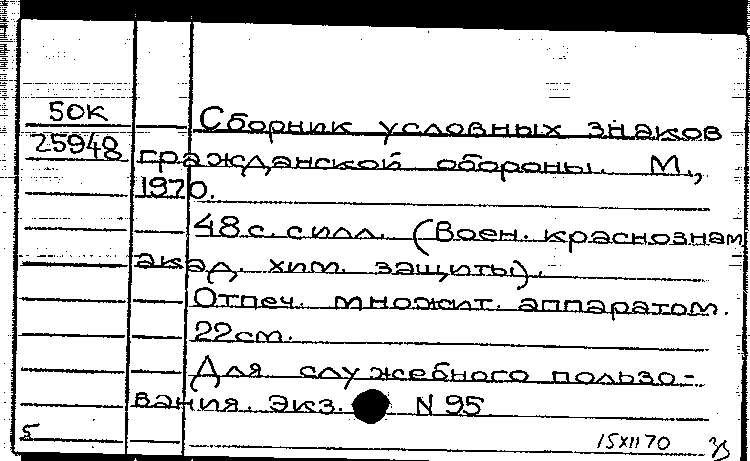 50К
25948
Сборник условных знаков
гражданской обороны. М.,
1970.
48 с. с илл. (Воен. краснознам
акад. хим. защиты).
Отпеч. множит. аппаратом.
22 см.
Для служебного пользо-
вания. Экз. N 95
5
15 XII 70